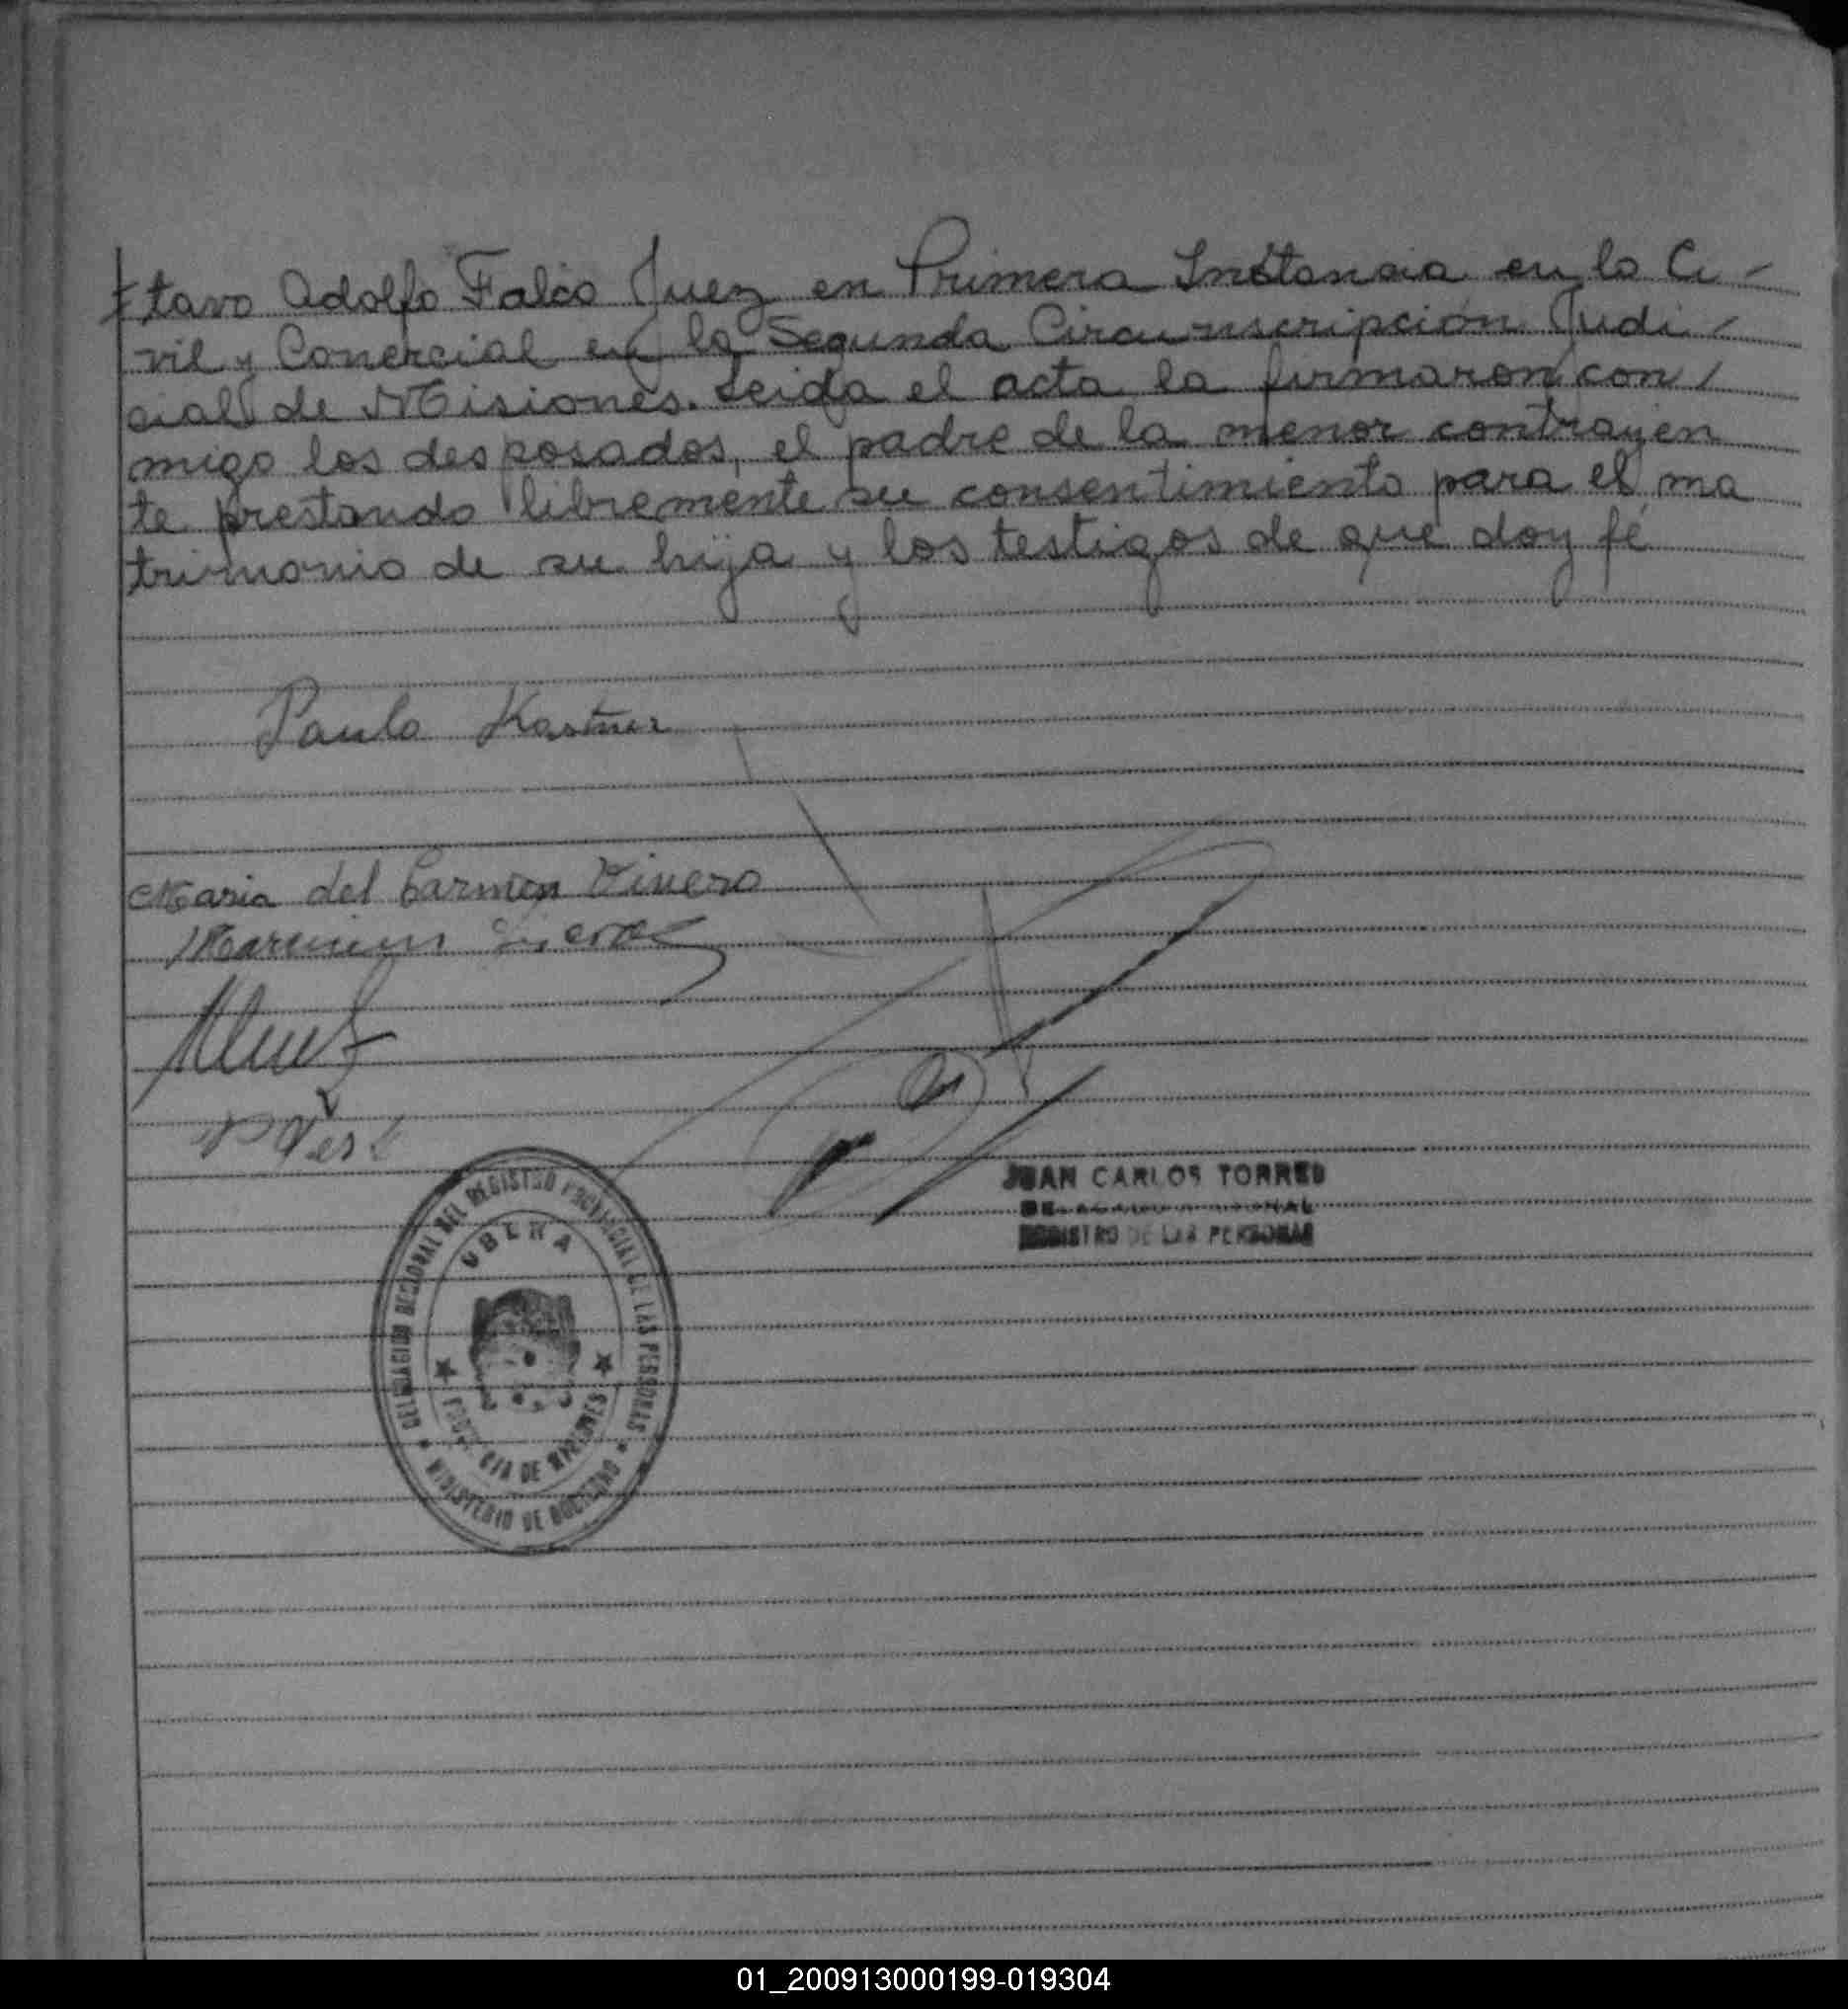 tavo Adolfo Falco Juez en Primera Instancia en lo Ci-
vil y Conercial en la Segunda Circunscripción Judi-
cial de Misiones. Leida el acta la firmaron con/
migo los desposados, el padre de la menor contrayen
te prestando libremente su consentimiento para el ma
trimonio de su hija y los testigos de que doy fé
Paulo Kastner
Maria del Carmen
JUAN CARLOS TORRES
REGISTRO DE LAS PERSONAS
DELEGACION REGIONAL DEL REGISTRO PROVINCIAL DE LAS PERSONAS
OBERA
PROVINCIA DE MISIONES
MINISTERIO DE GOBIERNO
01_200913000199-019304